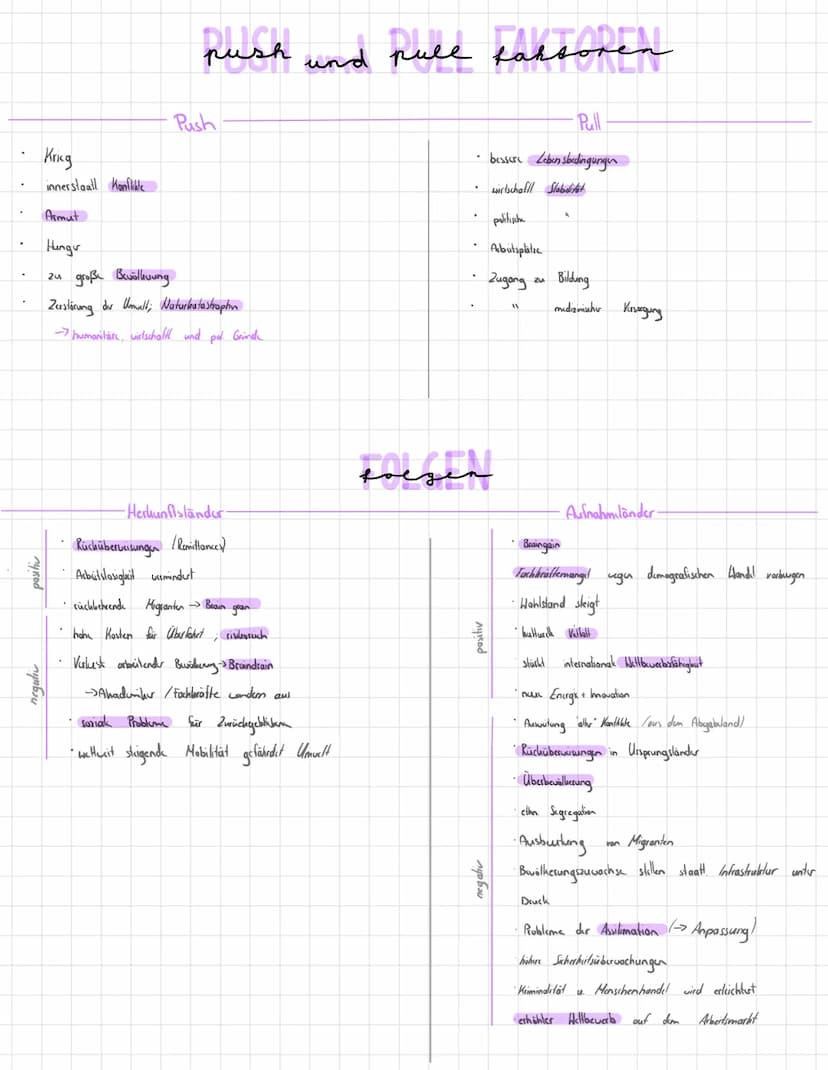 PUSH und PULL FAKTOREN
push und pull faktoren
Push
· Krieg
· innerstaatl Konflikte
· Armut
· Hunger
· zu große Bevölkerung
· Zerstörung der Umwelt; Naturkatastrophn
→ humanitäre, wirtschaftl und pol. Gründe
Pull
· bessere Lebensbedingungen
· wirtschaftl Stabilität
· politische "
· Arbeitsplätze
· Zugang zu Bildung
· " medizinischer Versorgung
FOLGEN
folgen
Herkunftsländer
positiv
· Rücküberweisungen (Remittances)
· Arbeitslosigkeit vermindert
· rückkehrende Migranten → Brain gean
negativ
· hohe Kosten für Überfahrt ; risikoreich
· Verlust arbeitender Bevölkerung → Braindrain
→ Akademiker / Fachkräfte wandern aus
· soziale Probleme für Zurückgebliebene
· weltweit steigende Mobilität gefährdet Umwelt
Aufnahmländer
positiv
· Braingain
Fachkräftemangel wegen demografischen Wandel vorbeugen
· Wohlstand steigt
· kulturelle Vielfalt
stärkt international Wettbewerbsfähigkeit
· neue Energie + Innovation
negativ
· Ausweitung "alter" Konflikte (aus dem Abgabeland)
· Rücküberweisungen in Ursprungsländer
· Überbevölkerung
· ethn Segregation
· Ausbeutung von Migranten
· Bevölkerungszuwächse stellen staatl. Infrastruktur unter
Druck
· Probleme der (→ Anpassung)
· höhere Sicherheitsüberwachungen
· Kriminalität u. Menschenhandel wird erleichtert
· erhöhter Wettbewerb auf dem Arbeitsmarkt